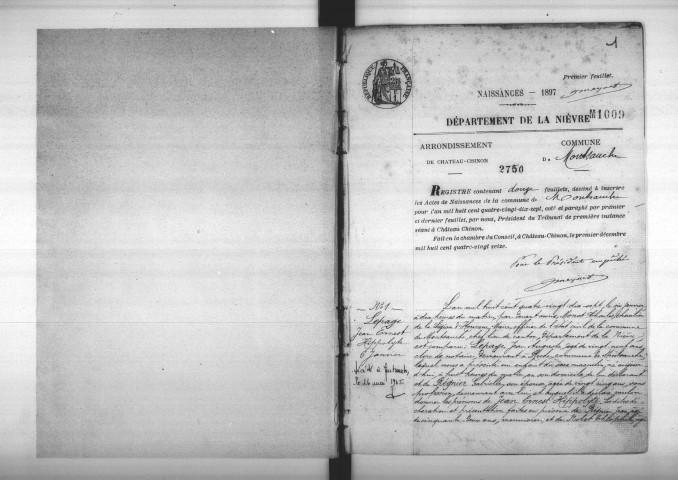 1
Premier feuillet.
RÉPUBLIQUE FRANÇAISE
NAISSANCES — 1897
DÉPARTEMENT DE LA NIÈVRE M 1009
ARRONDISSEMENT
DE CHATEAU-CHINON
COMMUNE
De Montsauche
2750
REGISTRE contenant douze feuillets, destiné à inscrire
les Actes de Naissances de la commune de Montsauche
pour l'an mil huit cent quatre-vingt-dix-sept, coté et paraphé par premier
et dernier feuillet, par nous, Président du Tribunal de première instance
séant à Château Chinon.
Fait en la chambre du Conseil, à Château-Chinon, le premier décembre
mil huit cent quatre-vingt seize.
Pour le Président empêché
N° 1
Lepage
Jean Ernest
Hippolyte
6 Janvier
L'an mil huit cent quatre vingt dix sept, le six janvier,
à dix heures du matin, par devant nous, Monot Charles, chevalier
de la Légion d'Honneur, Maire, officier de l'état civil de la commune
de Montsauche, chef lieu de canton, département de la Nièvre,
est comparu: Lepage Jean Auguste, âgé de vingt
clerc de notaire, demeurant à commune de Montsauche,
lequel nous a présenté un enfant du sexe masculin, né
à heures du matin, en son domicile, de lui déclarant
et de Régnier Gabrielle, son épouse, âgée de vingt ans, sans
profession, demeurant avec lui, et auquel il a déclaré vouloir
donner les prénoms de Jean Ernest Hippolyte. Lesdites dé-
claration et présentation faites en présence de Régnier
de cinquante deux ans, et de